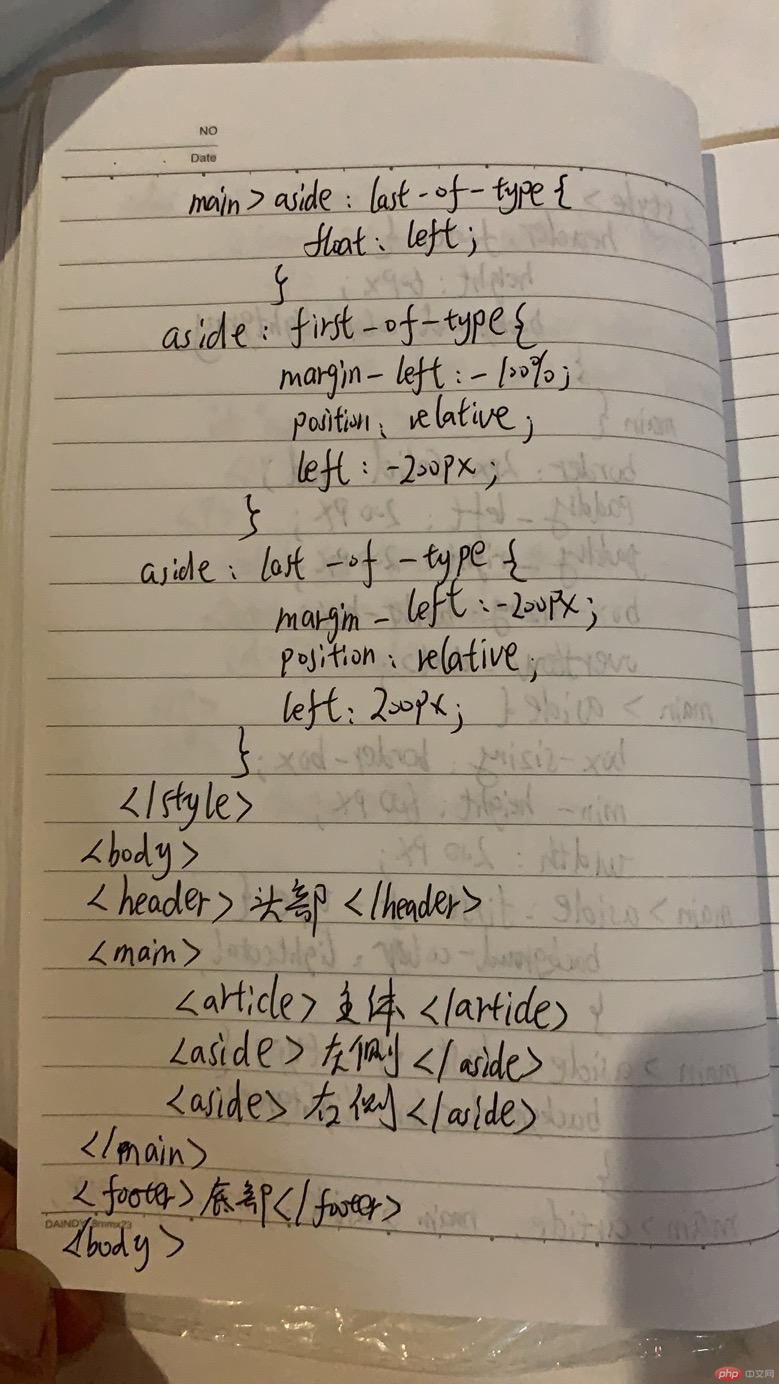 NO
Date
main > aside : last-of-type {
float : left ;
}
aside : first-of-type {
margin-left : -100% ;
position : relative ;
left : -200px ;
}
aside : last-of-type {
margin-left : -200px ;
position : relative ;
left : 200px ;
}
</style>
<body>
<header> 头部 </header>
<main>
<article> 主体 </article>
<aside> 左侧 </aside>
<aside> 右侧 </aside>
</main>
<footer> 底部 </footer>
</body>
php 中文网